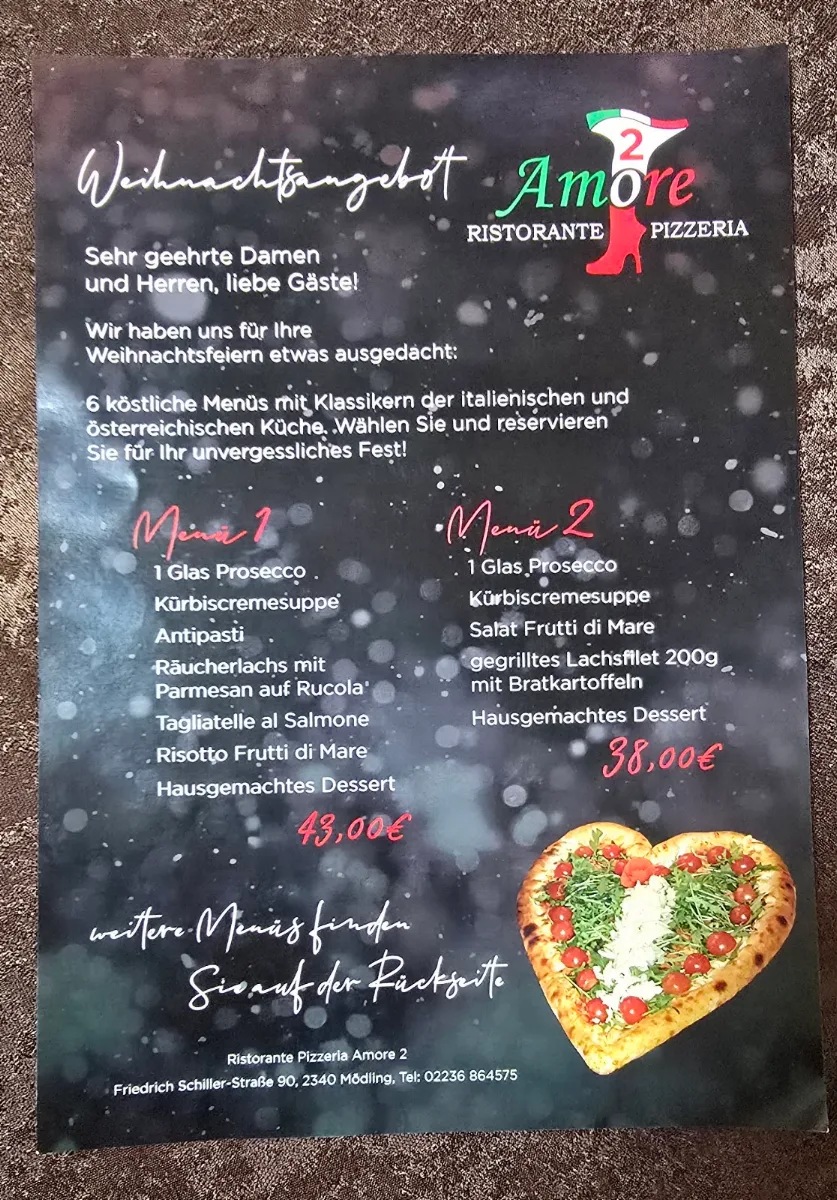 Weihnachtsangebot
2
Amore
RISTORANTE PIZZERIA
Sehr geehrte Damen
und Herren, liebe Gäste!
Wir haben uns für Ihre
Weihnachtsfeiern etwas ausgedacht:
6 köstliche Menüs mit Klassikern der italienischen und
österreichischen Küche. Wählen Sie und reservieren
Sie für Ihr unvergessliches Fest!
Menü 1
1 Glas Prosecco
Kürbiscremesuppe
Antipasti
Räucherlachs mit
Parmesan auf Rucola
Tagliatelle al Salmone
Risotto Frutti di Mare
Hausgemachtes Dessert
43,00€
Menü 2
1 Glas Prosecco
Kürbiscremesuppe
Salat Frutti di Mare
gegrilltes Lachsfilet 200g
mit Bratkartoffeln
Hausgemachtes Dessert
38,00€
weitere Menüs finden
Sie auf der Rückseite
Ristorante Pizzeria Amore 2
Friedrich Schiller-Straße 90, 2340 Mödling, Tel: 02236 864575